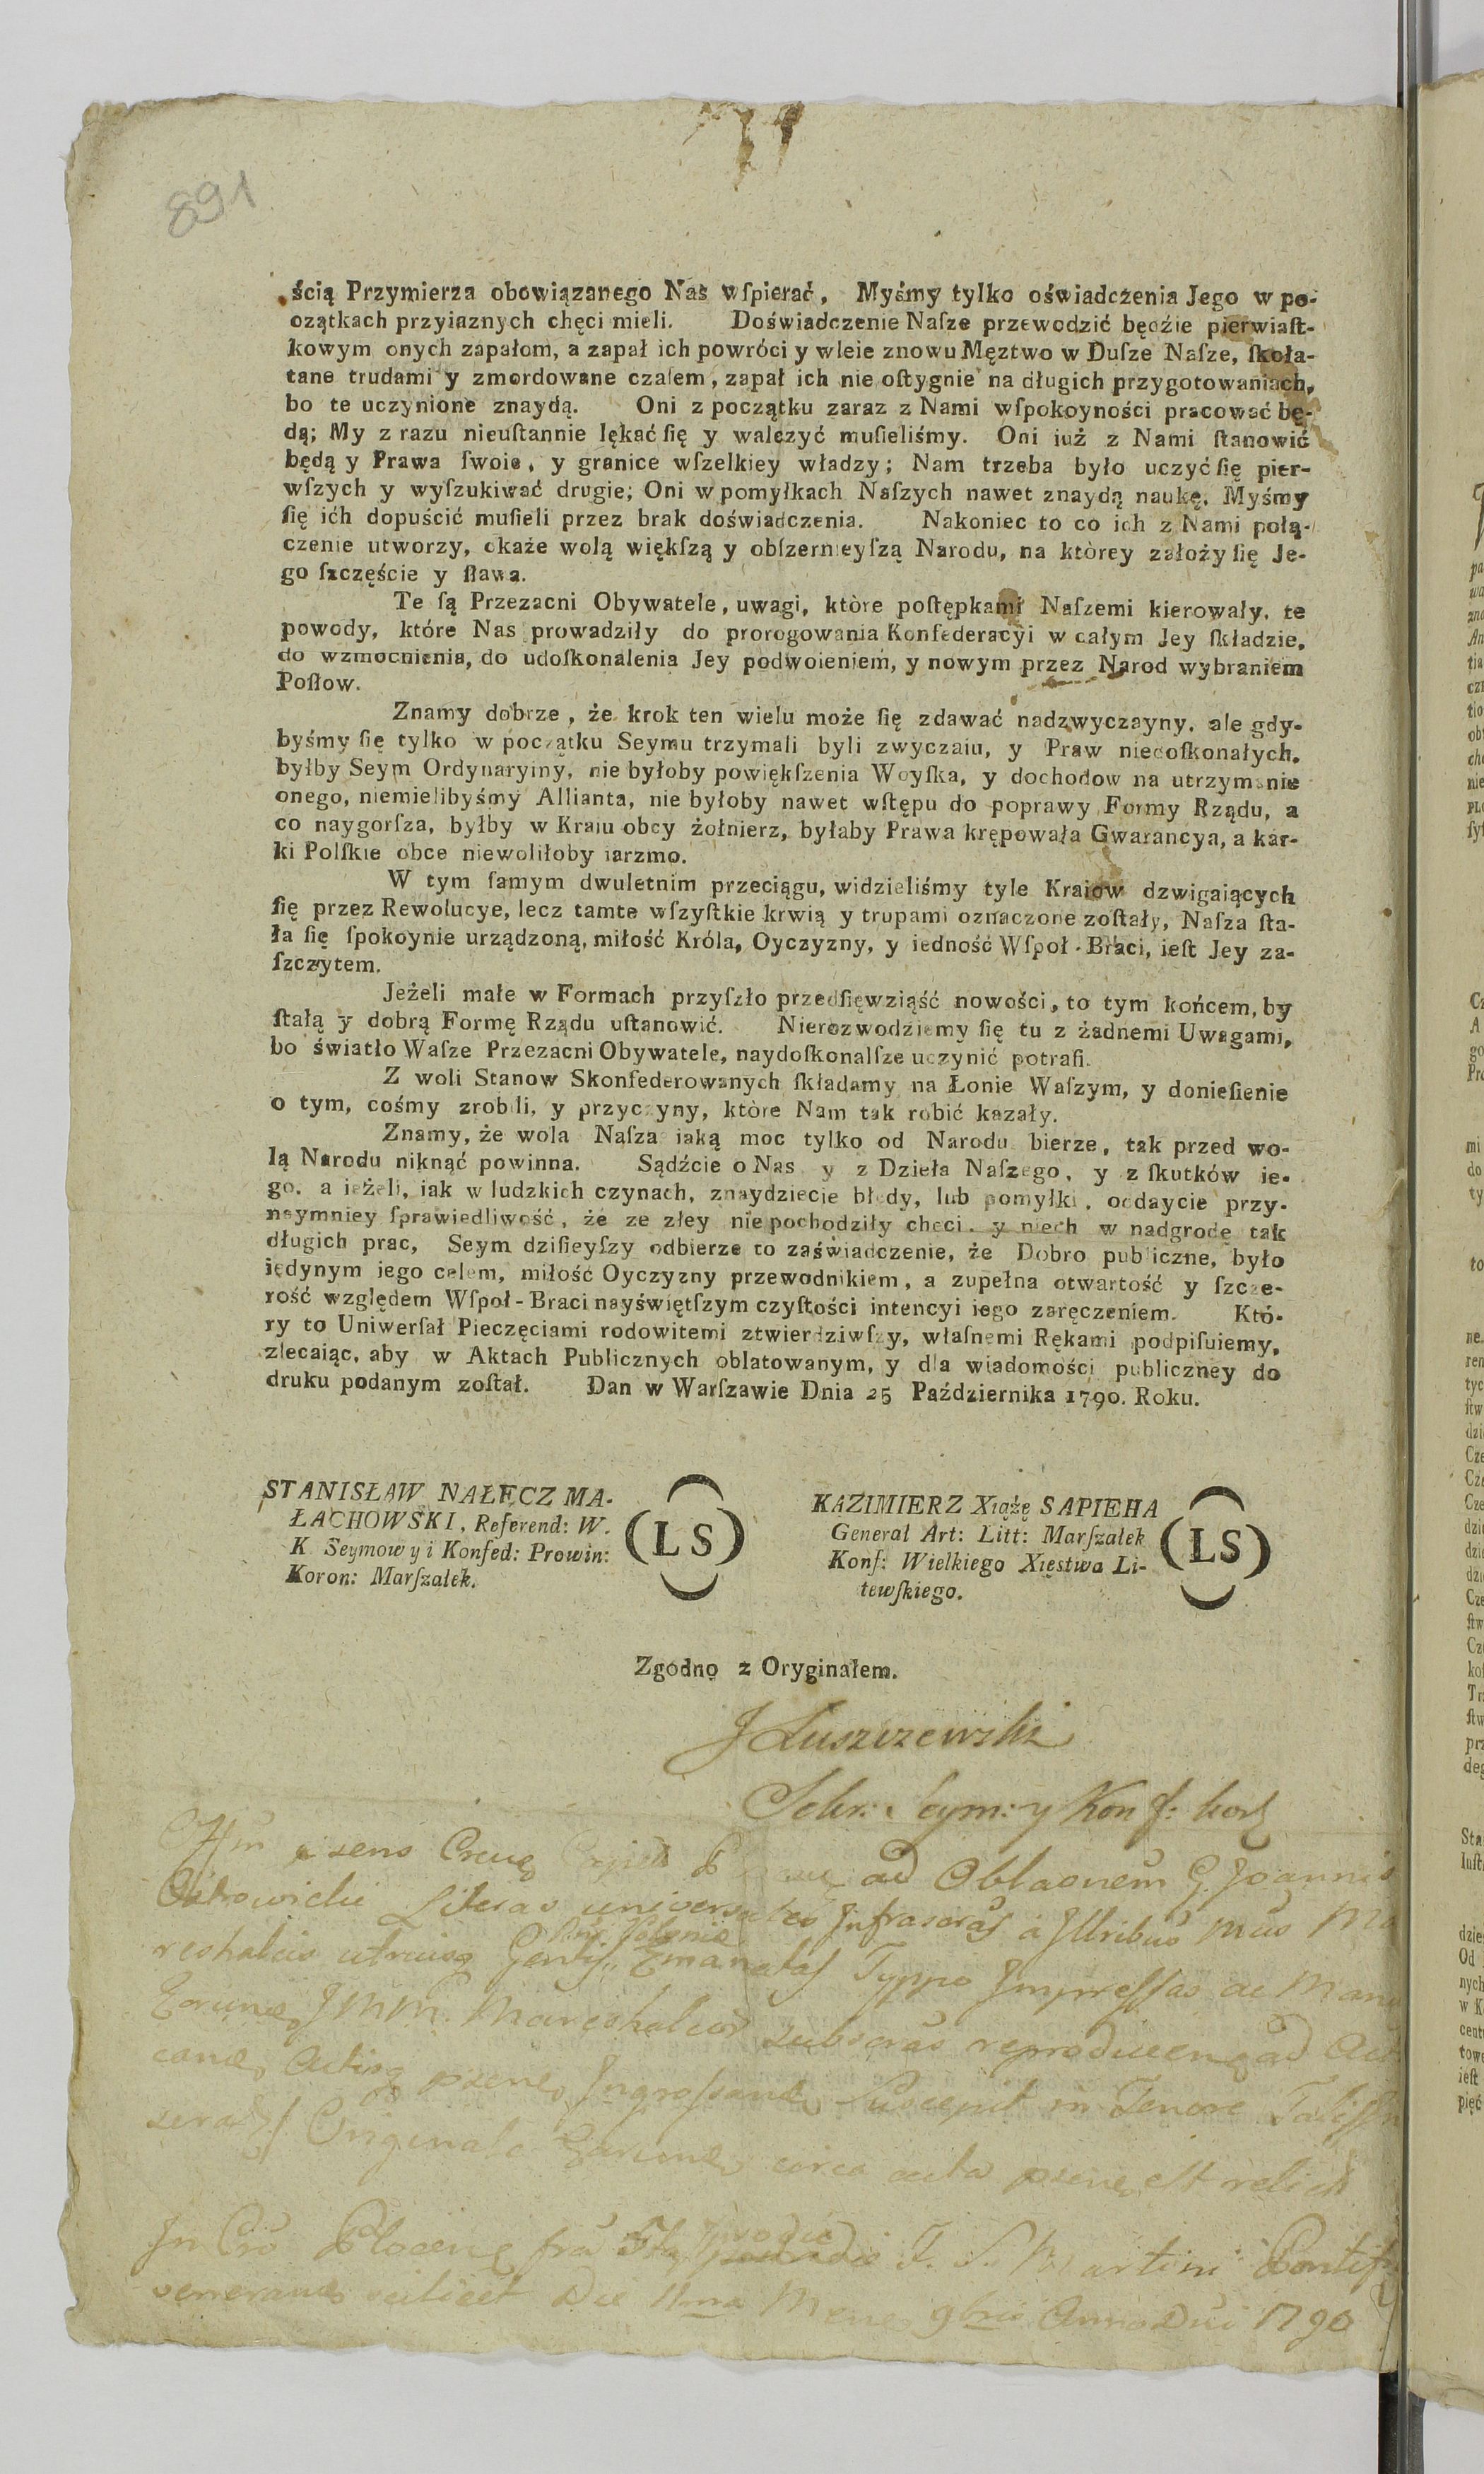 891
ścią Przymierza obowiązanego Nas wſpierać, Myśmy tylko oświadczenia Jego w po-
ozątkach przyiaznych chęci mieli. Doświadczenie Naſze przewodzić będźie pierwiaſt-
kowym onych zapałom, a zapał ich powróci y wleie znowu Męztwo w Duſze Naſze, ſkoła-
tane trudami y zmordowane czaſem, zapał ich nie oſtygnie na długich przygotowaniach,
bo te uczynione znaydą. Oni z początku zaraz z Nami wſpokoyności pracować bę-
dą; My z razu nieuſtannie lękać ſię y walczyć muſieliśmy. Oni iuż z Nami ſtanowić
będą y Prawa ſwoie, y granice wſzelkiey władzy; Nam trzeba było uczyć ſię pier-
wſzych y wyſzukiwać drugie; Oni w pomyłkach Naſzych nawet znaydą naukę, Myśmy
ſię ich dopuścić muſieli przez brak doświadczenia. Nakoniec to co ich z Nami połą-
czenie utworzy, okaże wolą więkſzą y obſzernieyſzą Narodu, na którey założy ſię Je-
go ſzczęście y ſława.
Te ſą Przezacni Obywatele, uwagi, ktòre poſtępkami Naſzemi kierowały, te
powody, które Nas prowadziły do prorogowania Konfederacyi w całym Jey ſkładzie,
do wzmocnienia, do udoſkonalenia Jey podwoieniem, y nowym przez Narod wybraniem
Poſłow.
Znamy dobrze, że krok ten wielu może ſię zdawać nadzwyczayny, ale gdy-
byśmy ſię tylko w początku Seymu trzymali byli zwyczaiu, y Praw niedoſkonałych,
byłby Seym Ordynaryiny, nie byłoby powiękſzenia Woyſka, y dochodow na utrzymanie
onego, niemielibyśmy Allianta, nie byłoby nawet wſtępu do poprawy Formy Rządu, a
co naygorſza, byłby w Kraiu obcy żołnierz, byłaby Prawa krępowała Gwarancya, a kar-
ki Polſkie obce niewoliłoby iarzmo.
W tym ſamym dwuletnim przeciągu, widzieliśmy tyle Kraiow dzwigaiących
ſię przez Rewolucye, lecz tamte wſzyſtkie krwią y trupami oznaczone zoſtały, Naſza ſta-
ła ſię ſpokoynie urządzoną, miłość Króla, Oyczyzny, y iedność Wſpoł-Braci, ieſt Jey za-
ſzczytem.
Jeżeli małe w Formach przyſzło przedſięwziąść nowości, to tym końcem, by
ſtałą y dobrą Formę Rządu uſtanowić. Nierozwodziemy ſię tu z żadnemi Uwagami,
bo światło Waſze Przezacni Obywatele, naydoſkonalſze uczynić potrafi.
Z woli Stanow Skonfederowanych ſkładamy na Łonie Waſzym, y donieſienie
o tym, cośmy zrobili, y przyczyny, ktòre Nam tak robić kazały.
Znamy, że wola Naſza iaką moc tylko od Narodu bierze, tak przed wo-
lą Narodu niknąć powinna. Sądźcie o Nas y z Dzieła Naſzego, y z ſkutków ie-
go, a ieżeli, iak w ludzkich czynach, znaydziecie błędy, lub pomyłki, oddaycie przy-
naymniey ſprawiedliwość, że ze złey nie pochodziły chęci, y niech w nadgrodę tak
długich prac, Seym dziſieyſzy odbierze to zaświadczenie, że Dobro publiczne, było
iedynym iego celem, miłość Oyczyzny przewodnikiem, a zupełna otwartość y ſzcze-
rość względem Wſpoł-Braci nayświętſzym czyſtości intencyi iego zaręczeniem. Któ-
ry to Uniwerſał Pieczęciami rodowitemi ztwierdziwſzy, właſnemi Rękami podpiſuiemy,
zlecaiąc, aby w Aktach Publicznych oblatowanym, y dla wiadomości publiczney do
druku podanym zoſtał. Dan w Warſzawie Dnia 25 Października 1790. Roku.
STANISŁAW NAŁĘCZ MA-
ŁACHOWSKI, Referend: W.
K Seymowy i Konfed: Prowin:
Koron: Marſzałek.
(LS)
KAZIMIERZ Xiążę SAPIEHA
Generał Art: Litt: Marſzałek
Konf: Wielkiego Xięstwa Li-
tewſkiego.
(LS)
Zgodno z Oryginałem.
J Łuszczewski
Sekr: Seym: y Konf:
ad Oblaonem G. Joannis
Literas universales Infrascras à Illribus
utriusq Gentis Emanatas Typpo Impressas ac
Eorund. JMM. Mareschalcor subscras reproducen ad
Ingrossand Suscepit in Tenore
Originale Earund circa acta psene est
In Cro Plocen fra
scilicet Die 11ma Mens 9bris Anno Dni 1790